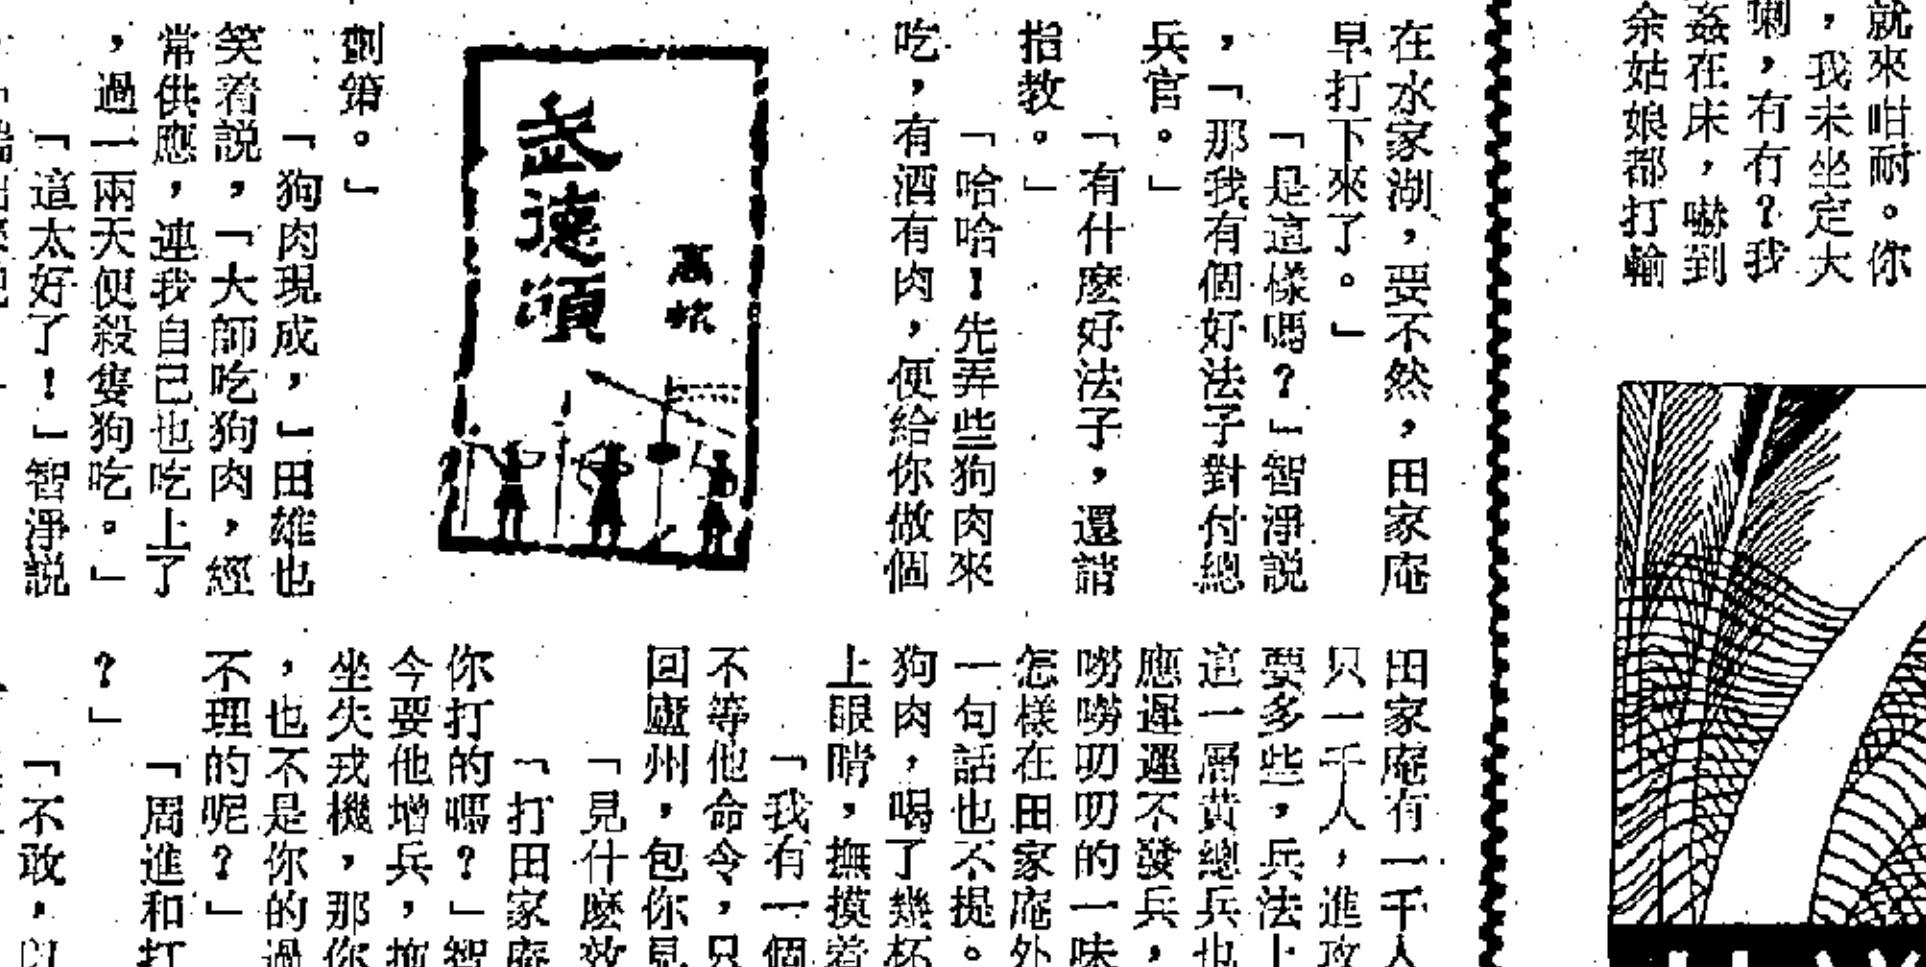 就來咁耐。你
，我未坐定大
喇，有冇？我
姦在床，嚇到
余姑娘都打輸
在水家湖，要不然，田家庵
早打下來了。」
「是這樣嗎？」智淨説
，「那我有個好法子對付總
兵官。」
「有什麼好法子，還請
指教。」
「哈哈！先弄些狗肉來
吃，有酒有肉，便給你做個
武德頌
劃策。」
「狗肉現成，」田雄也
笑着説，「大師吃狗肉，經
常供應，連我自己也吃上了
，過一兩天便殺隻狗吃。」
「這太好了！」智淨説
田家庵有一千人
只一千人，進攻
要多些，兵法上
這一層黄總兵也
應遲遲不發兵，
嘮嘮叨叨的一味
怎樣在田家庵外
一句話也不提。
狗肉，喝了幾杯
上眼睛，撫摸着
「我有一個
不等他命令，只
回廬州，包你見
「見什麼效
「打田家庵
你打的嗎？」智
今要他增兵，拖
坐失戎機，那你
，也不是你的過
不理的呢？」
「周進和打
？」
「不敢，以